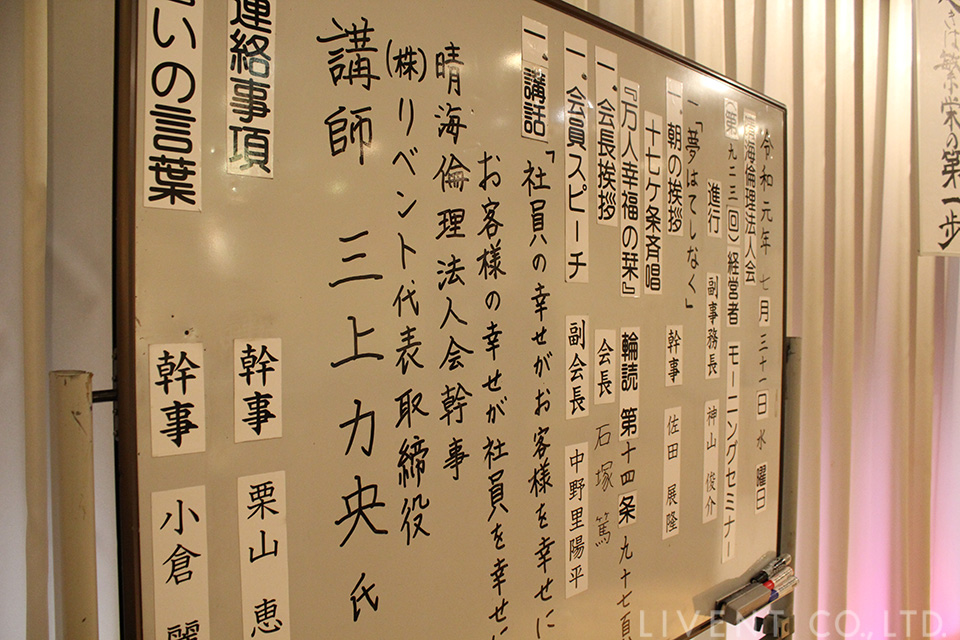 令和元年七月三十一日水曜日
晴海倫理法人会
(第九二三回)経営者モーニングセミナー
進行 副事務長 神山 俊介
一「夢はてしなく」 幹事 佐田 展隆
一.朝の挨拶
十七ケ条斉唱
『万人幸福の栞』 輪読 第十四条 九十七頁
一.会長挨拶 会長 石塚 篤
一.会員スピーチ 副会長 中野里陽平
一.講話
「社員の幸せがお客様を幸せに
お客様の幸せが社員を幸せに
晴海倫理法人会幹事
(株)リベント代表取締役
講師 三上力央氏
連絡事項 幹事 栗山 恵
いの言葉 幹事 小倉
きは繁栄の第一歩
LIVENT CO., LTD.